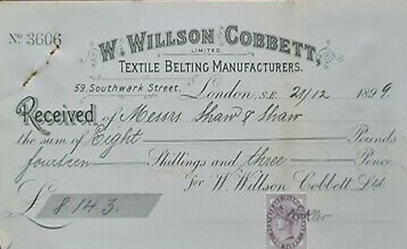 No 3606
W. WILLSON COBBETT,
LIMITED.
TEXTILE BELTING MANUFACTURERS.
59, Southwark Street, London, S.E. 21/12 1899.
Received of Messrs Shaw & Shaw
the sum of Eight Pounds
fourteen Shillings and three Pence
for W. Willson Cobbett Ltd
£ 8.14.3.